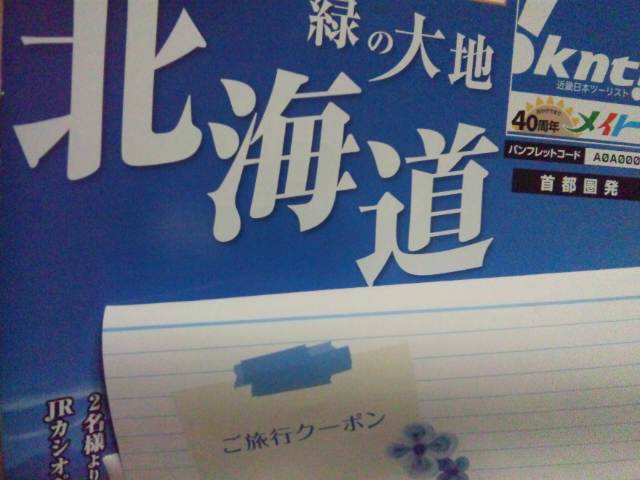 緑の大地
北海道
knt!
近畿日本ツーリスト
40周年
メイト
パンフレットコード A0A000
首都圏発
ご旅行クーポン
2名様より
JRカシオペ